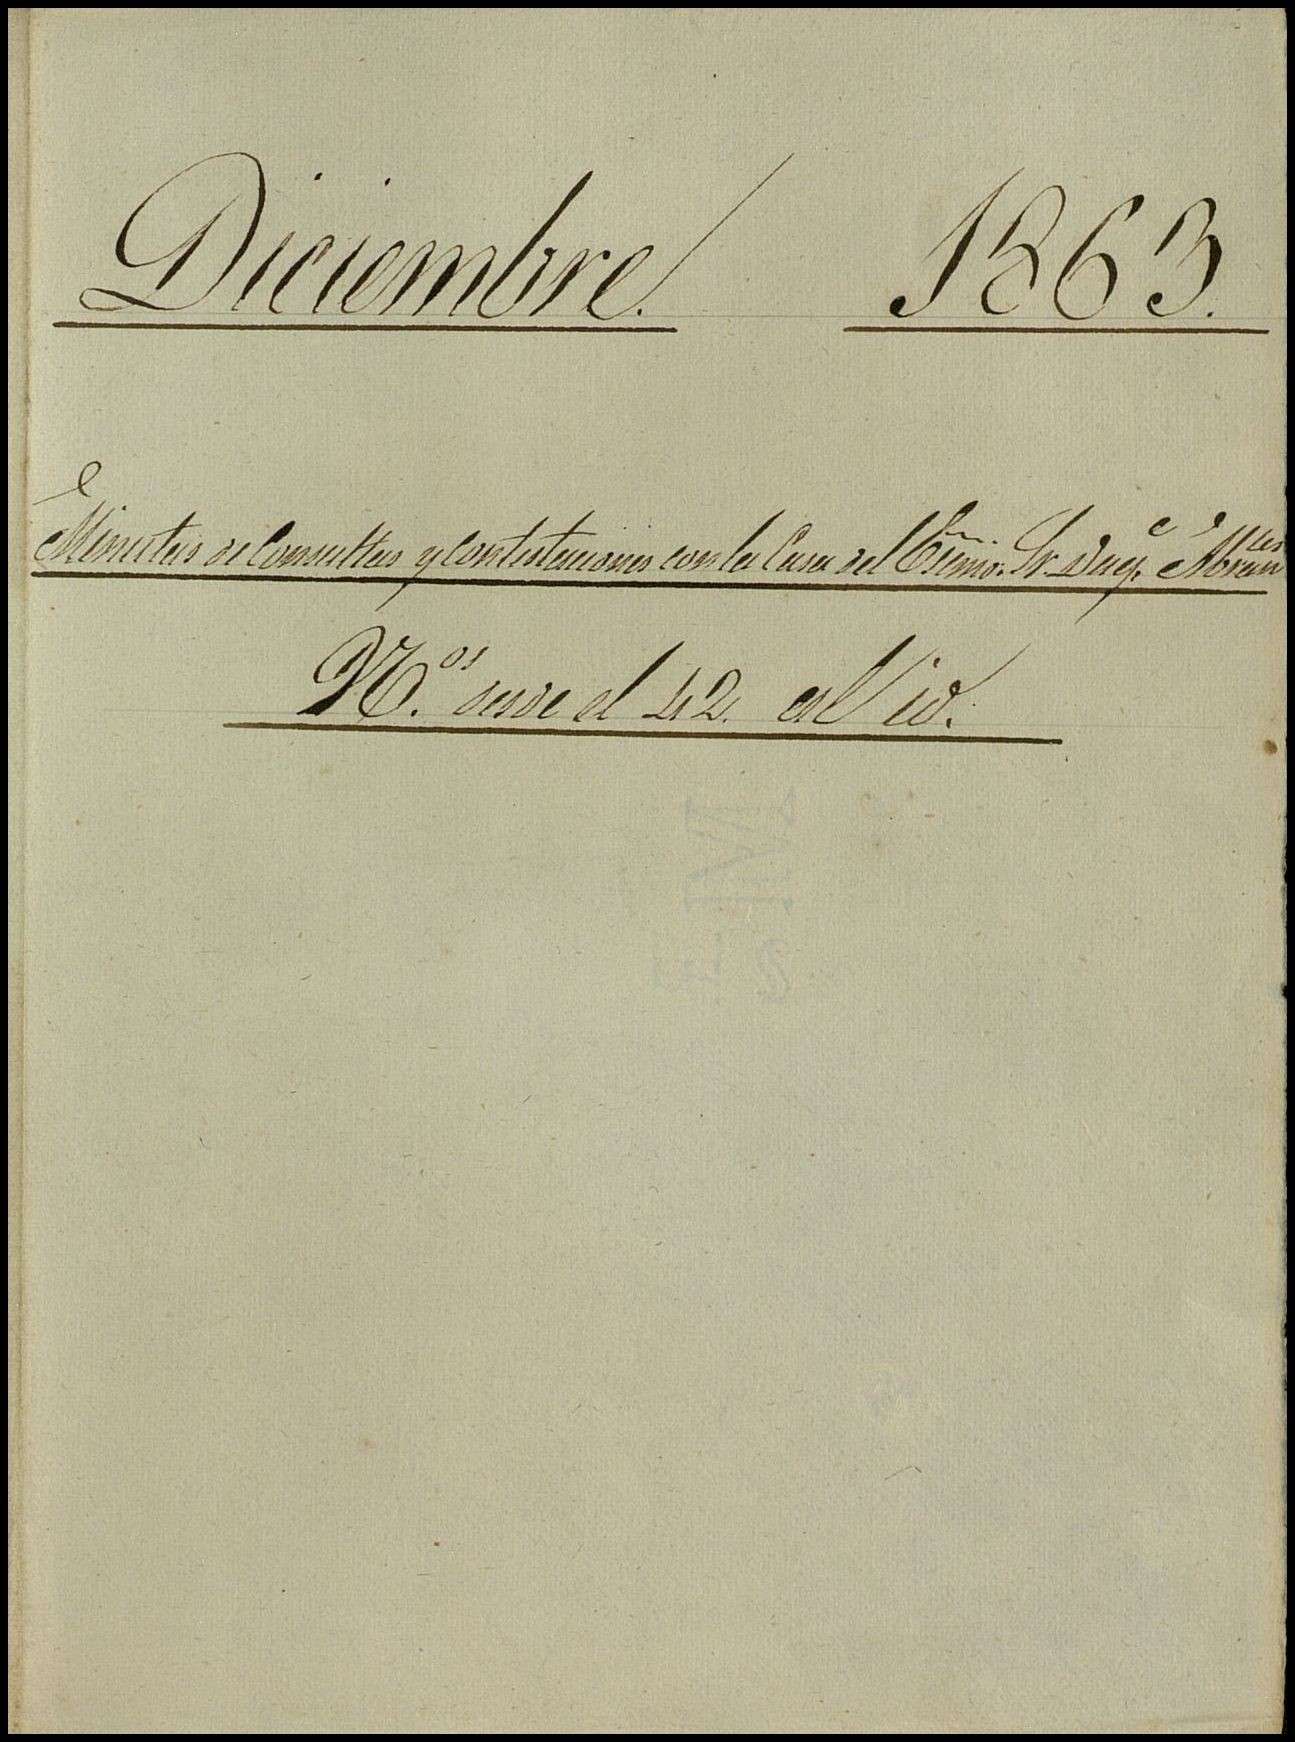 Diciembre. 1863.
Minutas de Consultas y contestaciones con la Casa del Excmo. Sr. Duq.e Abrantes
N.os desde el 42. al id.